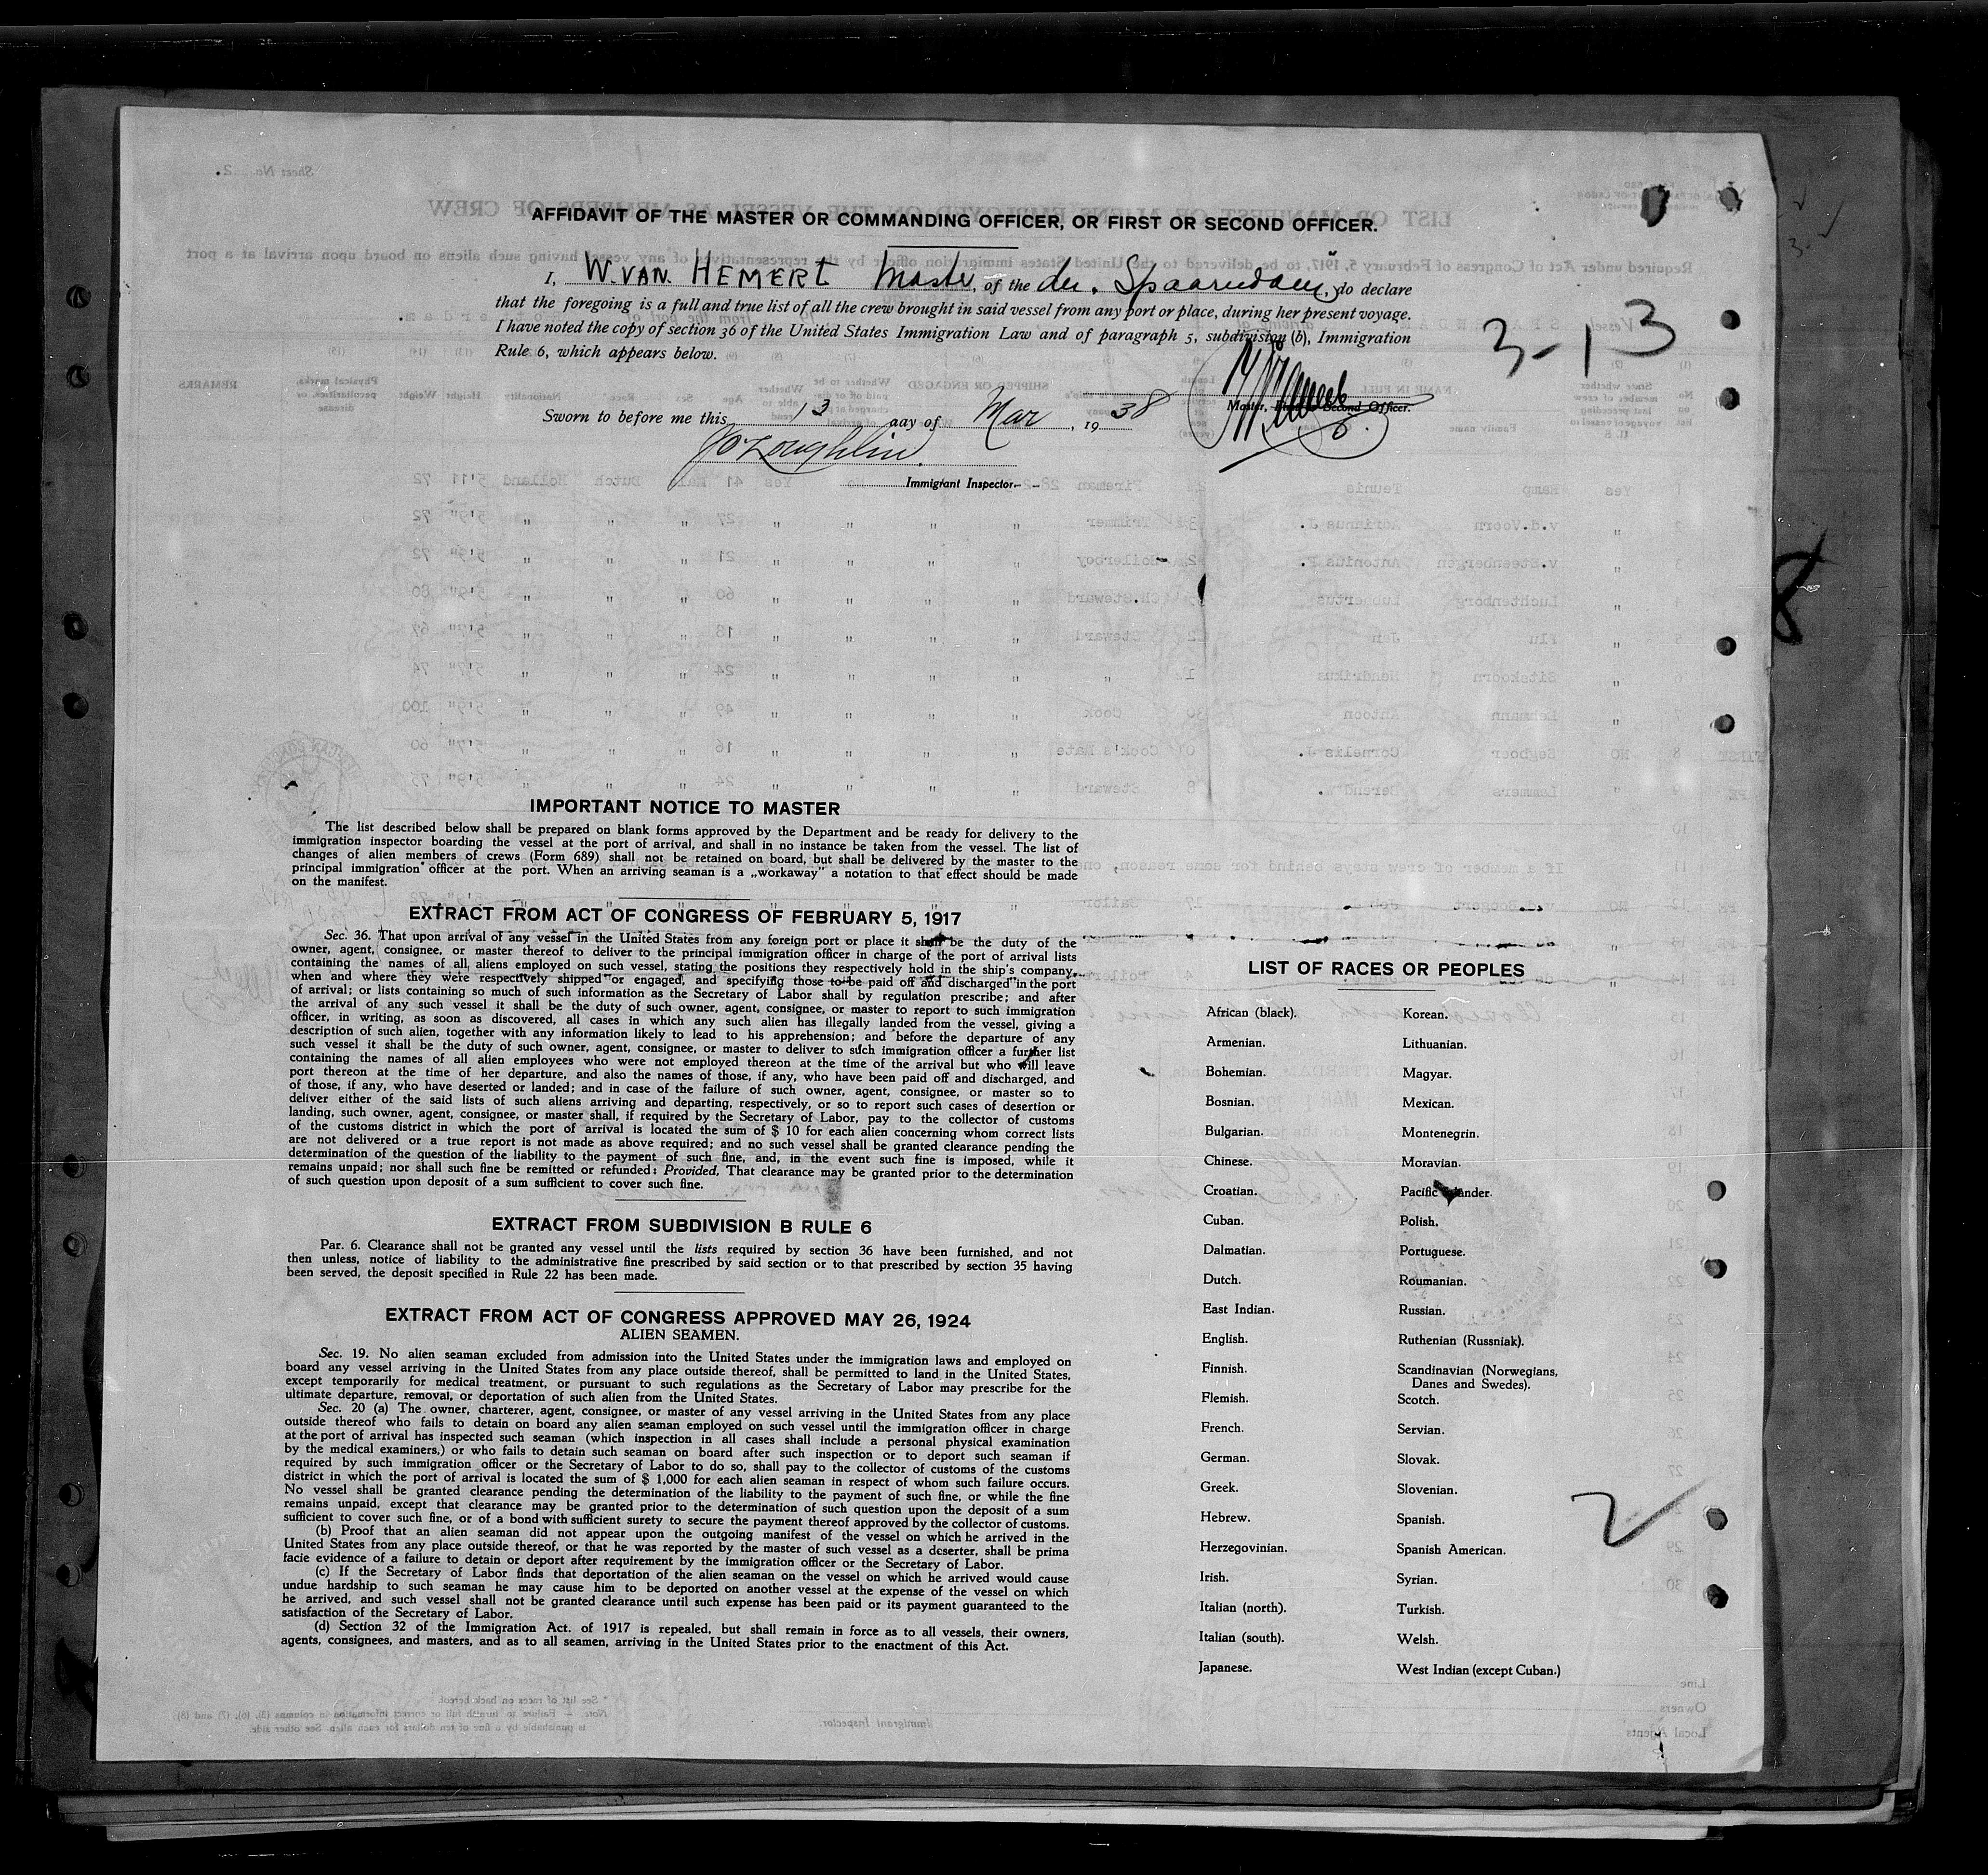 AFFIDAVIT OF THE MASTER OR COMMANDING OFFICER, OR FIRST OR SECOND OFFICER.
I, W. VAN. HEMERT Master, of the du. Spaarndam, do declare
that the foregoing is a full and true list of all the crew brought in said vessel from any port or place, during her present voyage.
I have noted the copy of section 36 of the United States Immigration Law and of paragraph 5, subdivision (b), Immigration
Rule 6, which appears below.
3-13
Master, First or Second Officer.
Sworn to before me this 13 day of Mar, 1938
J O'Loughlin
Immigrant Inspector.
IMPORTANT NOTICE TO MASTER
The list described below shall be prepared on blank forms approved by the Department and be ready for delivery to the
immigration inspector boarding the vessel at the port of arrival, and shall in no instance be taken from the vessel. The list of
changes of alien members of crews (Form 689) shall not be retained on board, but shall be delivered by the master to the
principal immigration officer at the port. When an arriving seaman is a „workaway" a notation to that effect should be made
on the manifest.
EXTRACT FROM ACT OF CONGRESS OF FEBRUARY 5, 1917
Sec. 36. That upon arrival of any vessel in the United States from any foreign port or place it shall be the duty of the
owner, agent, consignee, or master thereof to deliver to the principal immigration officer in charge of the port of arrival lists
containing the names of all aliens employed on such vessel, stating the positions they respectively hold in the ship's company,
when and where they were respectively shipped or engaged, and specifying those to be paid off and discharged in the port
of arrival; or lists containing so much of such information as the Secretary of Labor shall by regulation prescribe; and after
the arrival of any such vessel it shall be the duty of such owner, agent, consignee, or master to report to such immigration
officer, in writing, as soon as discovered, all cases in which any such alien has illegally landed from the vessel, giving a
description of such alien, together with any information likely to lead to his apprehension; and before the departure of any
such vessel it shall be the duty of such owner, agent, consignee, or master to deliver to such immigration officer a further list
containing the names of all alien employees who were not employed thereon at the time of the arrival but who will leave
port thereon at the time of her departure, and also the names of those, if any, who have been paid off and discharged, and
of those, if any, who have deserted or landed; and in case of the failure of such owner, agent, consignee, or master so to
deliver either of the said lists of such aliens arriving and departing, respectively, or so to report such cases of desertion or
landing, such owner, agent, consignee, or master shall, if required by the Secretary of Labor, pay to the collector of customs
of the customs district in which the port of arrival is located the sum of $ 10 for each alien concerning whom correct lists
are not delivered or a true report is not made as above required; and no such vessel shall be granted clearance pending the
determination of the question of the liability to the payment of such fine, and, in the event such fine is imposed, while it
remains unpaid; nor shall such fine be remitted or refunded: Provided, That clearance may be granted prior to the determination
of such question upon deposit of a sum sufficient to cover such fine.
EXTRACT FROM SUBDIVISION B RULE 6
Par. 6. Clearance shall not be granted any vessel until the lists required by section 36 have been furnished, and not
then unless, notice of liability to the administrative fine prescribed by said section or to that prescribed by section 35 having
been served, the deposit specified in Rule 22 has been made.
EXTRACT FROM ACT OF CONGRESS APPROVED MAY 26, 1924
ALIEN SEAMEN.
Sec. 19. No alien seaman excluded from admission into the United States under the immigration laws and employed on
board any vessel arriving in the United States from any place outside thereof, shall be permitted to land in the United States,
except temporarily for medical treatment, or pursuant to such regulations as the Secretary of Labor may prescribe for the
ultimate departure, removal, or deportation of such alien from the United States.
Sec. 20 (a) The owner, charterer, agent, consignee, or master of any vessel arriving in the United States from any place
outside thereof who fails to detain on board any alien seaman employed on such vessel until the immigration officer in charge
at the port of arrival has inspected such seaman (which inspection in all cases shall include a personal physical examination
by the medical examiners,) or who fails to detain such seaman on board after such inspection or to deport such seaman if
required by such immigration officer or the Secretary of Labor to do so, shall pay to the collector of customs of the customs
district in which the port of arrival is located the sum of $ 1,000 for each alien seaman in respect of whom such failure occurs.
No vessel shall be granted clearance pending the determination of the liability to the payment of such fine, or while the fine
remains unpaid, except that clearance may be granted prior to the determination of such question upon the deposit of a sum
sufficient to cover such fine, or of a bond with sufficient surety to secure the payment thereof approved by the collector of customs.
(b) Proof that an alien seaman did not appear upon the outgoing manifest of the vessel on which he arrived in the
United States from any place outside thereof, or that he was reported by the master of such vessel as a deserter, shall be prima
facie evidence of a failure to detain or deport after requirement by the immigration officer or the Secretary of Labor.
(c) If the Secretary of Labor finds that deportation of the alien seaman on the vessel on which he arrived would cause
undue hardship to such seaman he may cause him to be deported on another vessel at the expense of the vessel on which
he arrived, and such vessel shall not be granted clearance until such expense has been paid or its payment guaranteed to the
satisfaction of the Secretary of Labor.
(d) Section 32 of the Immigration Act. of 1917 is repealed, but shall remain in force as to all vessels, their owners,
agents, consignees, and masters, and as to all seamen, arriving in the United States prior to the enactment of this Act.
LIST OF RACES OR PEOPLES
African (black).
Armenian.
Bohemian.
Bosnian.
Bulgarian.
Chinese.
Croatian.
Cuban.
Dalmatian.
Dutch.
East Indian.
English.
Finnish.
Flemish.
French.
German.
Greek.
Hebrew.
Herzegovinian.
Irish.
Italian (north).
Italian (south).
Japanese.
Korean.
Lithuanian.
Magyar.
Mexican.
Montenegrin.
Moravian.
Pacific Islander.
Polish.
Portuguese.
Roumanian.
Russian.
Ruthenian (Russniak).
Scandinavian (Norwegians,
Danes and Swedes).
Scotch.
Servian.
Slovak.
Slovenian.
Spanish.
Spanish American.
Syrian.
Turkish.
Welsh.
West Indian (except Cuban.)
2
8